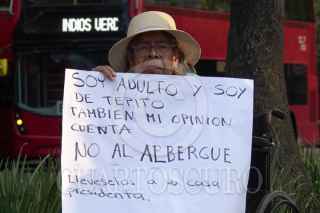 INDIOS VERC
SOY ADULTO Y SOY
DE TEPITO
TAMBIEN MI OPINION
CUENTA
NO AL ALBERGUE
Lleveselos a su casa
presidenta.